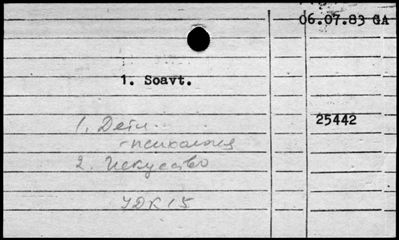 06.07.83 GA
1. Soavt.
25442
1. Дети
-психология
2. Искусство
УДК 15